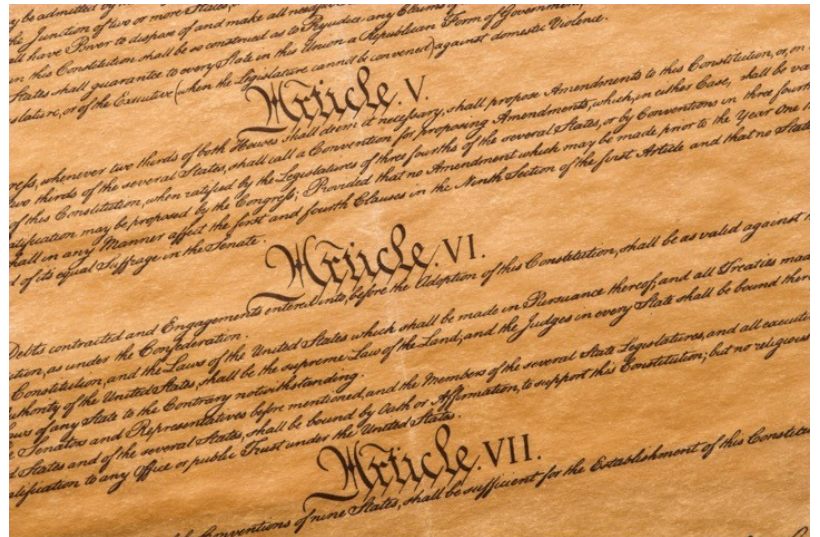 y be admitted by the
the Junction of two or more States,
all have Power to dispose of and make all needful
in this Constitution shall be so construed as to Prejudice any Claims
States shall guarantee to every State in this Union a Republican Form of Government,
slature, or of the Executive (when the Legislature cannot be convened) against domestic Violence.
Article. V.
ress, whenever two thirds of both Houses shall deem it necessary, shall propose Amendments to this Constitution, or, on
two thirds of the several States, shall call a Convention for proposing Amendments, which, in either Case, shall be va
of this Constitution, when ratified by the Legislatures of three fourths of the several States, or by Conventions in three fourth
atification may be proposed by the Congress; Provided that no Amendment which may be made prior to the Year One
hall in any Manner affect the first and fourth Clauses in the Ninth Section of the first Article and that no State
d of its equal Suffrage in the Senate.
Article. VI.
Debts contracted and Engagements entered into, before the Adoption of this Constitution, shall be as valid against
tion, as under the Confederation.
Constitution, and the Laws of the United States which shall be made in Pursuance thereof; and all Treaties mad
uthority of the United States, shall be the supreme Law of the Land; and the Judges in every State shall be bound there
aws of any State to the Contrary notwithstanding.
e Senators and Representatives before mentioned, and the Members of the several State Legislatures, and all executi
d States and of the several States, shall be bound by Oath or Affirmation, to support this Constitution; but no religious
alification to any Office or public Trust under the United States.
Article. VII.
Conventions of nine States, shall be sufficient for the Establishment of this Constitu